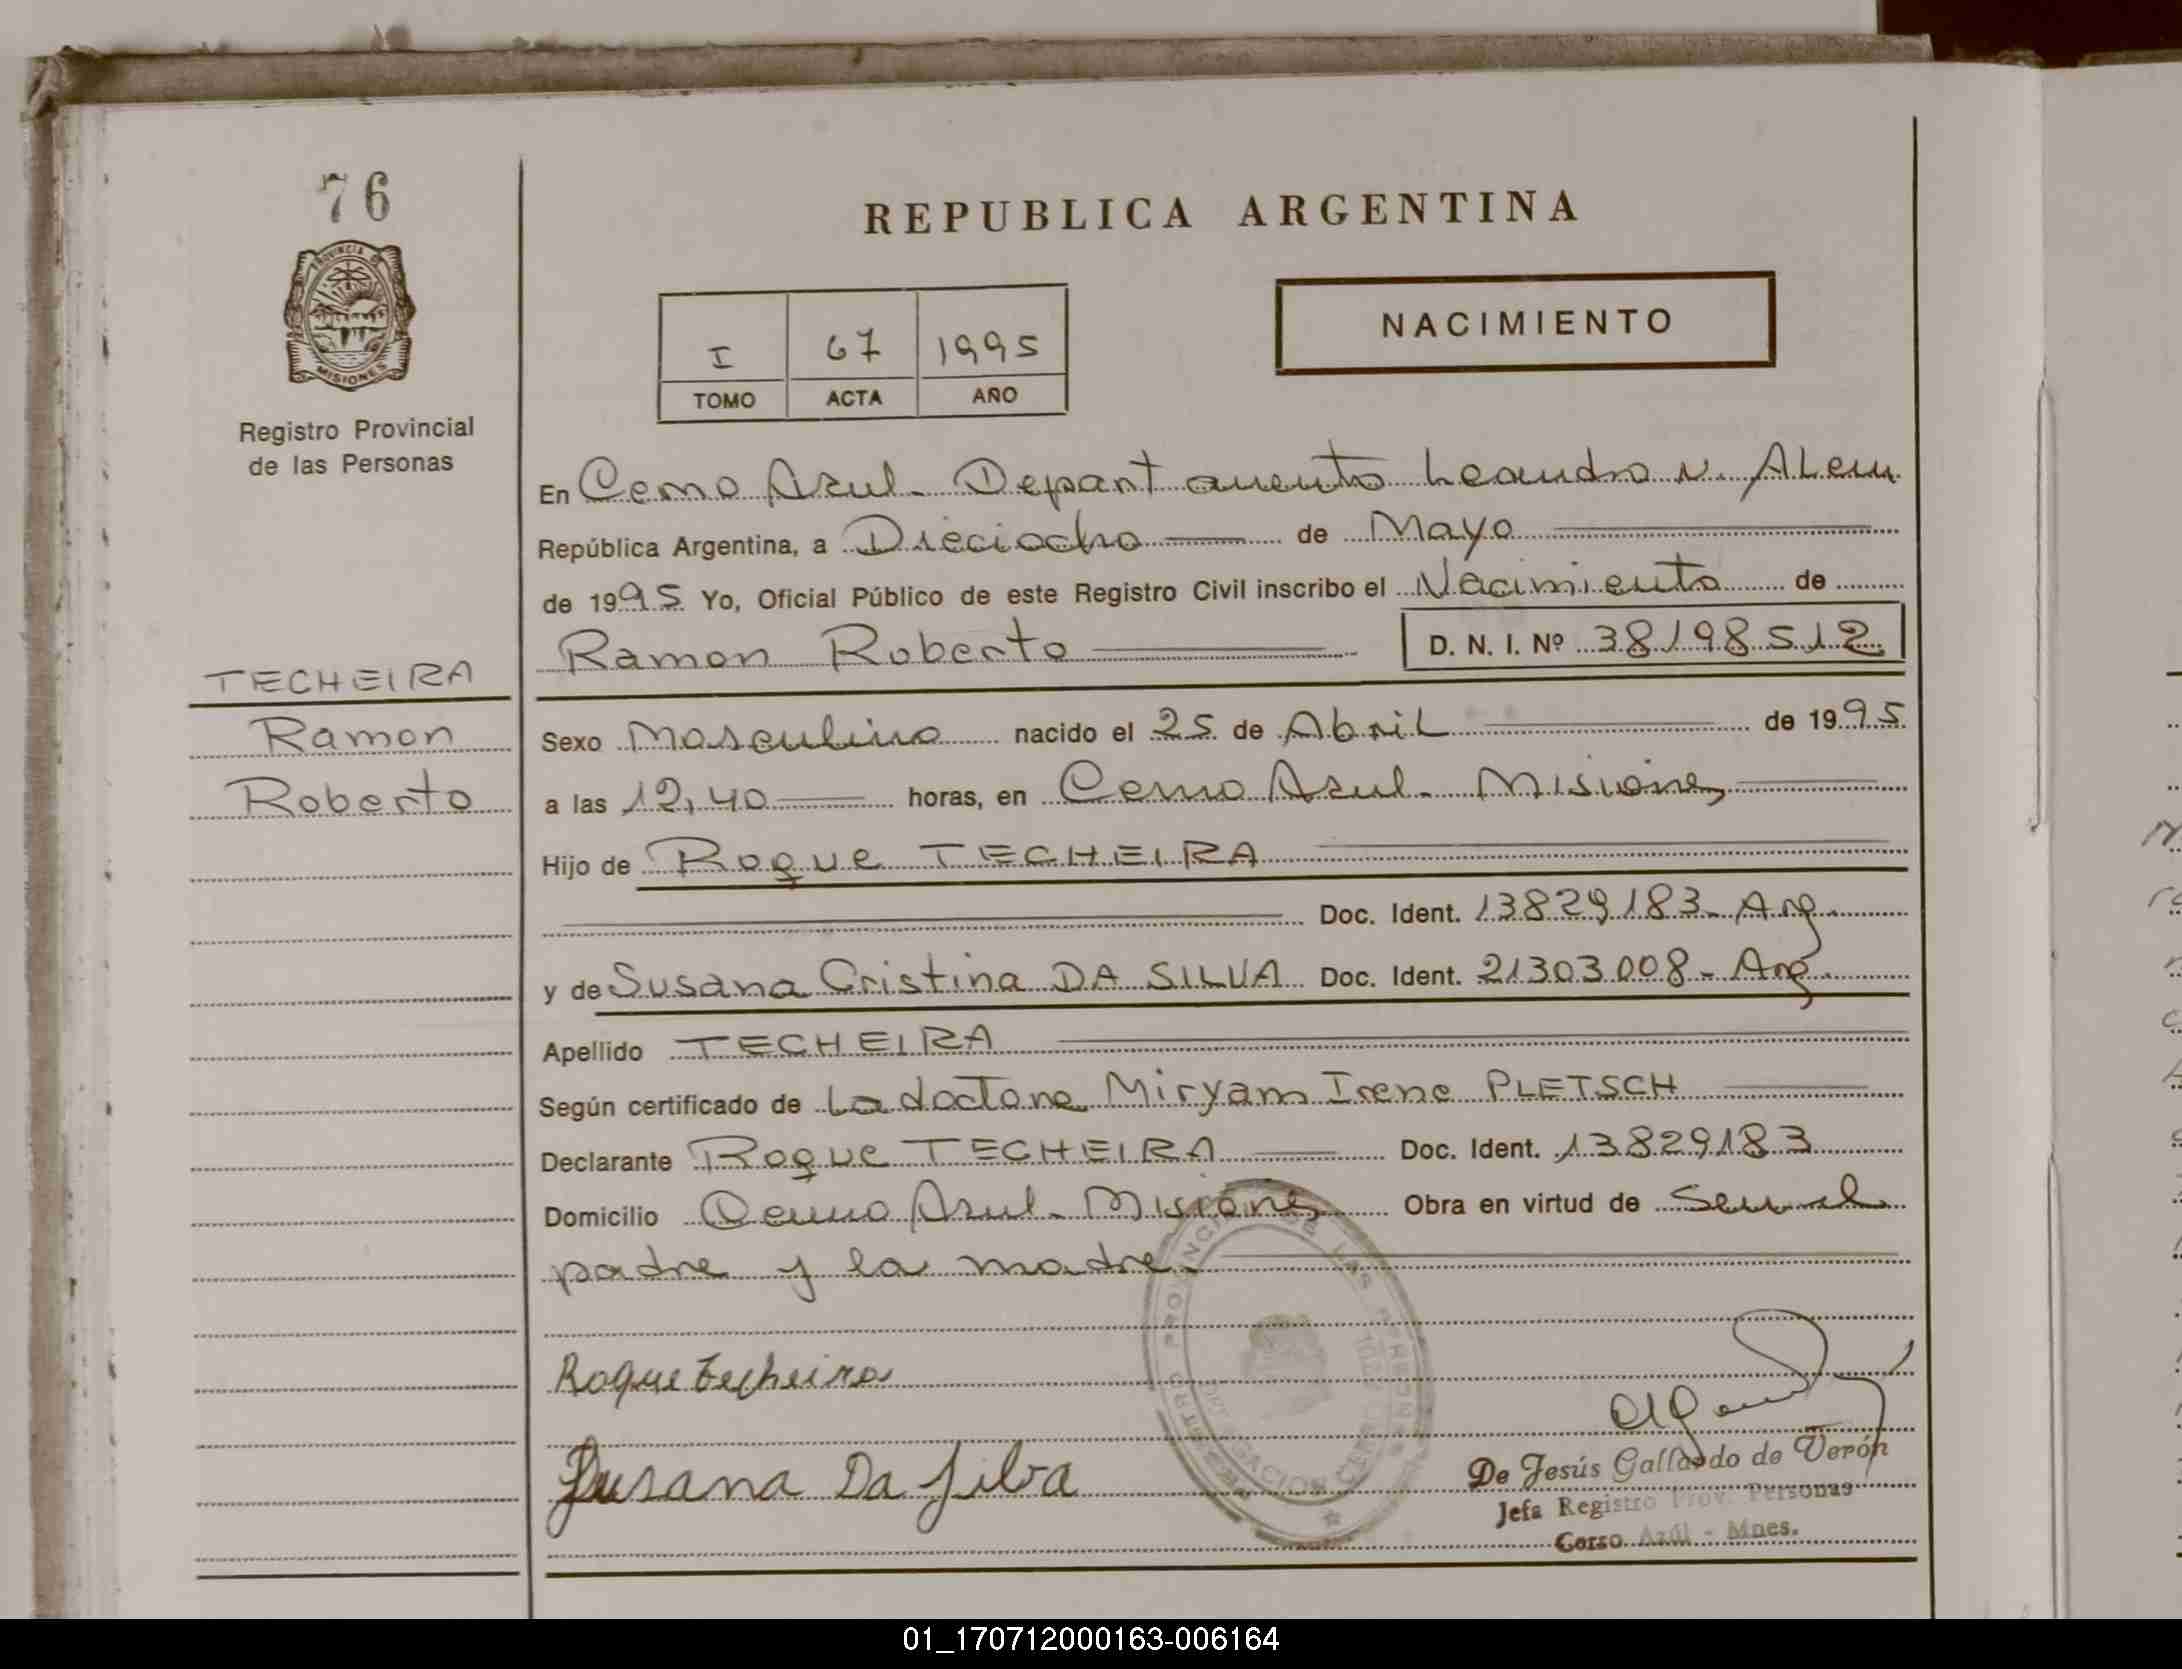 76
REPUBLICA ARGENTINA
PROVINCIA DE
MISIONES
Registro Provincial
de las Personas
NACIMIENTO
I 67 1995
TOMO ACTA AÑO
En Cerro Azul - Departamento Leandro N. Alem
República Argentina, a Dieciocho de Mayo
de 1995 Yo, Oficial Público de este Registro Civil inscribo el Nacimiento de
Ramon Roberto D. N. I. Nº 38198512
TECHEIRA
Ramon
Roberto
Sexo Masculino nacido el 25 de Abril de 1995
a las 12,40 horas, en Cerro Azul - Misiones
Hijo de Roque TECHEIRA
Doc. Ident. 13829183 - Arg.
y de Susana Cristina DA SILVA Doc. Ident. 21303008 - Arg.
Apellido TECHEIRA
Según certificado de La doctora Miryam Irene PLETSCH
Declarante Roque TECHEIRA Doc. Ident. 13829183
Domicilio Cerro Azul - Misiones Obra en virtud de ser el
padre y la madre.
Roque Techeira
Susana Da Silva
De Jesús Gallardo de Verón
Jefa Registro Prov. Personas
Cerro Azúl - Mnes.
01_170712000163-006164